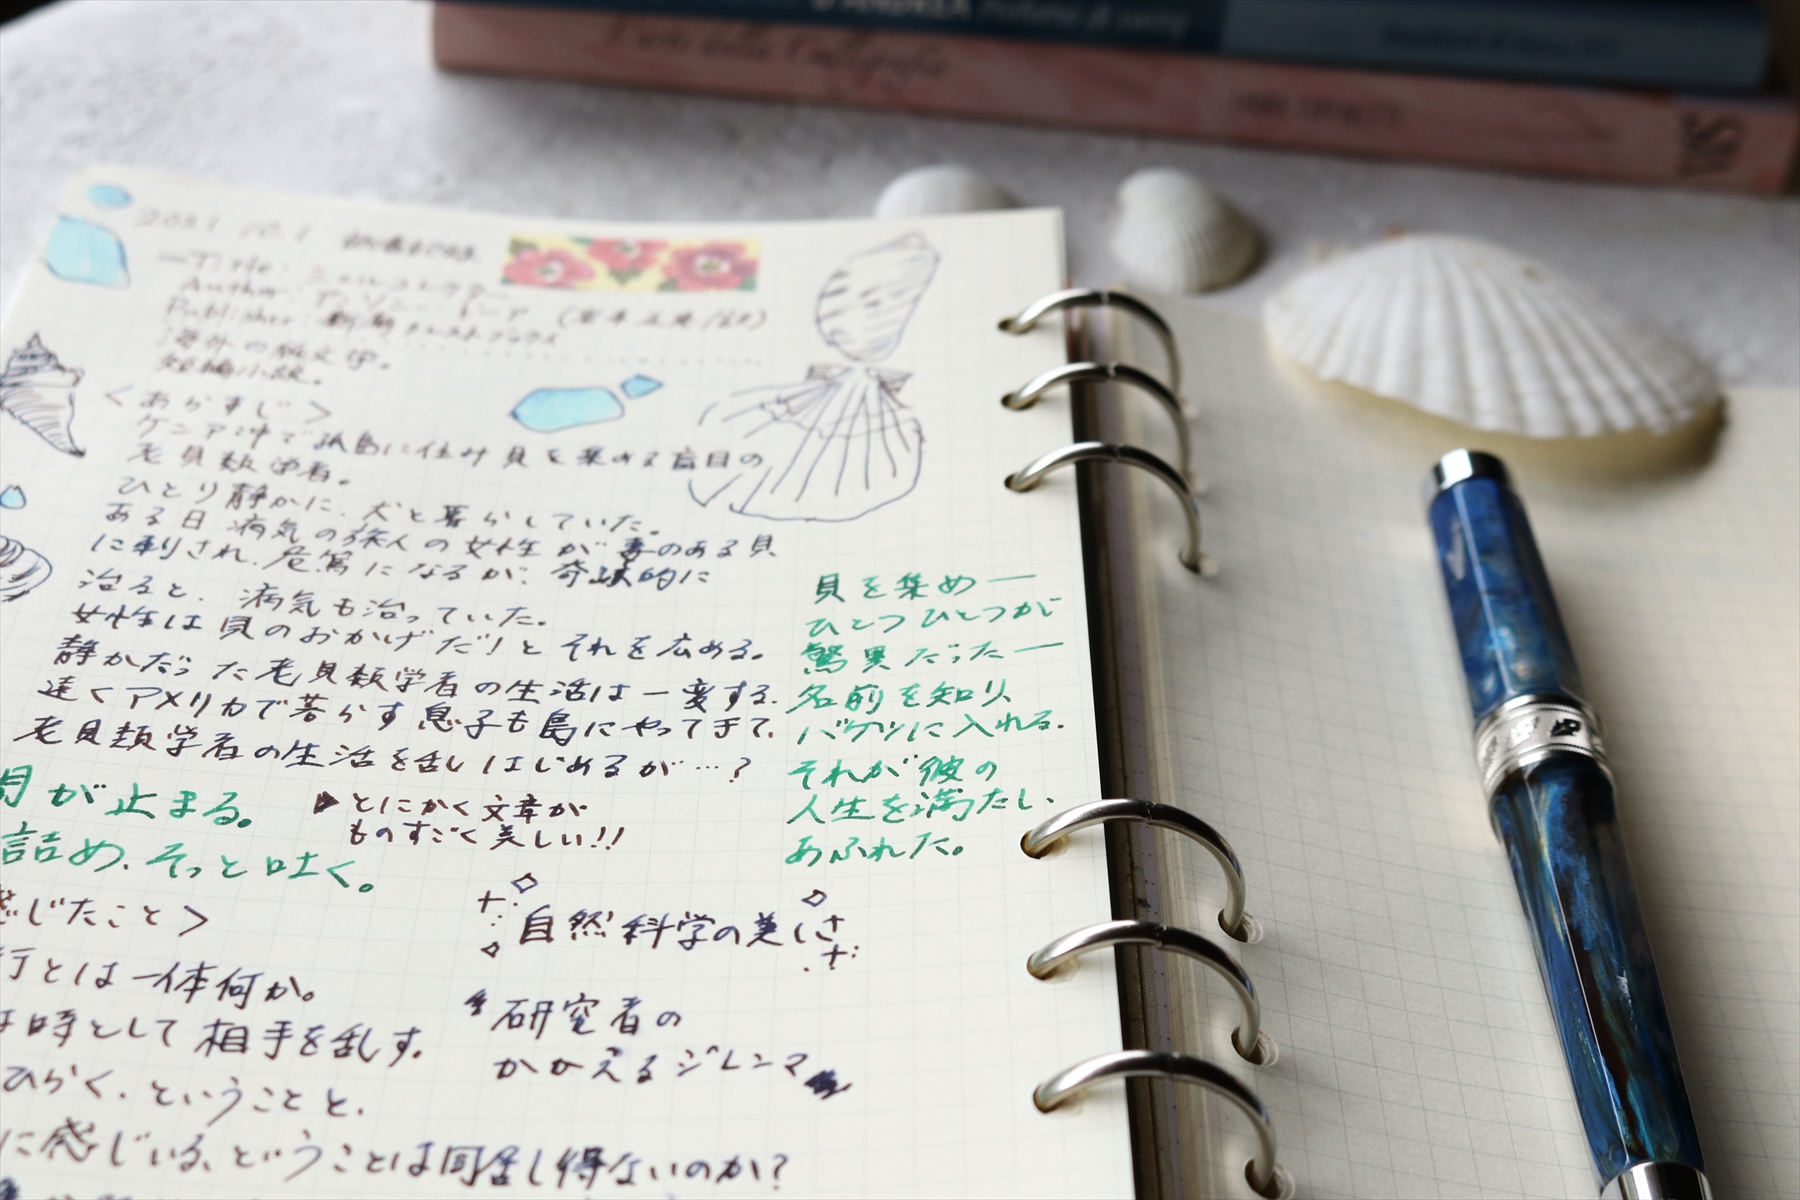 D'ANDREA Profumo di
L'arte della Calligrafia
2021.10.1
Title: シェルコレクター
Author: アンソニー・ドーア (岩本正恵/訳)
Publisher: 新潮クレストブックス
海外の純文学。
短編小説。
<あらすじ>
ケニア沖で孤島に住み貝を集める盲目の
老貝類学者。
ひとり静かに、犬と暮らしていた。
ある日病気の旅人の女性が毒のある貝
に刺され、危篤になるが、奇跡的に
治ると、病気も治っていた。
女性は貝のおかげだ!とそれを広める。
静かだった老貝類学者の生活は一変する。
遠くアメリカで暮らす息子も島にやってきて、
老貝類学者の生活を乱しはじめるが…?
貝を集め―
ひとつひとつが
驚異だった―
名前を知り、
バケツに入れる。
それが彼の
人生を満たし、
あふれた。
が止まる。
詰め、そっと吐く。
とにかく文章が
ものすごく美しい!!
感じたこと>
自然科学の美しさ
行とは一体何か。
は時として相手を乱す。
研究者の
かかえるジレンマ
ひらく、ということと、
に感じいる、ということは同居し得ないのか?